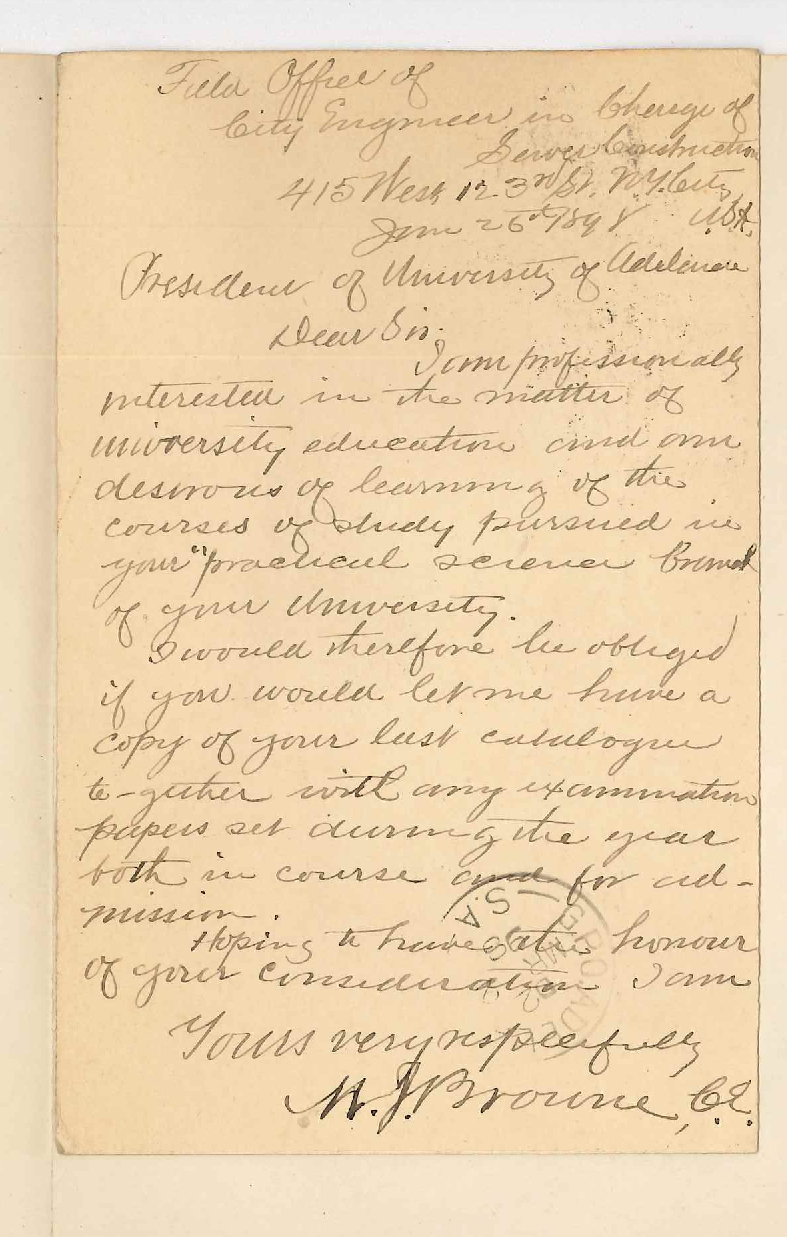 Field Office of
City Engineer in Charge of
Sewer Construction
415 West 123rd St. N.Y. City
Jan 26th 1898 U.S.A.
President of University of Adelaide
Dear Sir.
I am professionally
interested in the matter of
university education and am
desirous of learning of the
courses of study pursued in
your "practical science branch
of your University.
I would therefore be obliged
if you would let me have a
copy of your last catalogue
to-gether with any examination
papers set during the year
both in course and for ad-
mission.
Hoping to have the honour
of your consideration I am
Yours very respectfully
M. J. Browne, C.E.
S.A